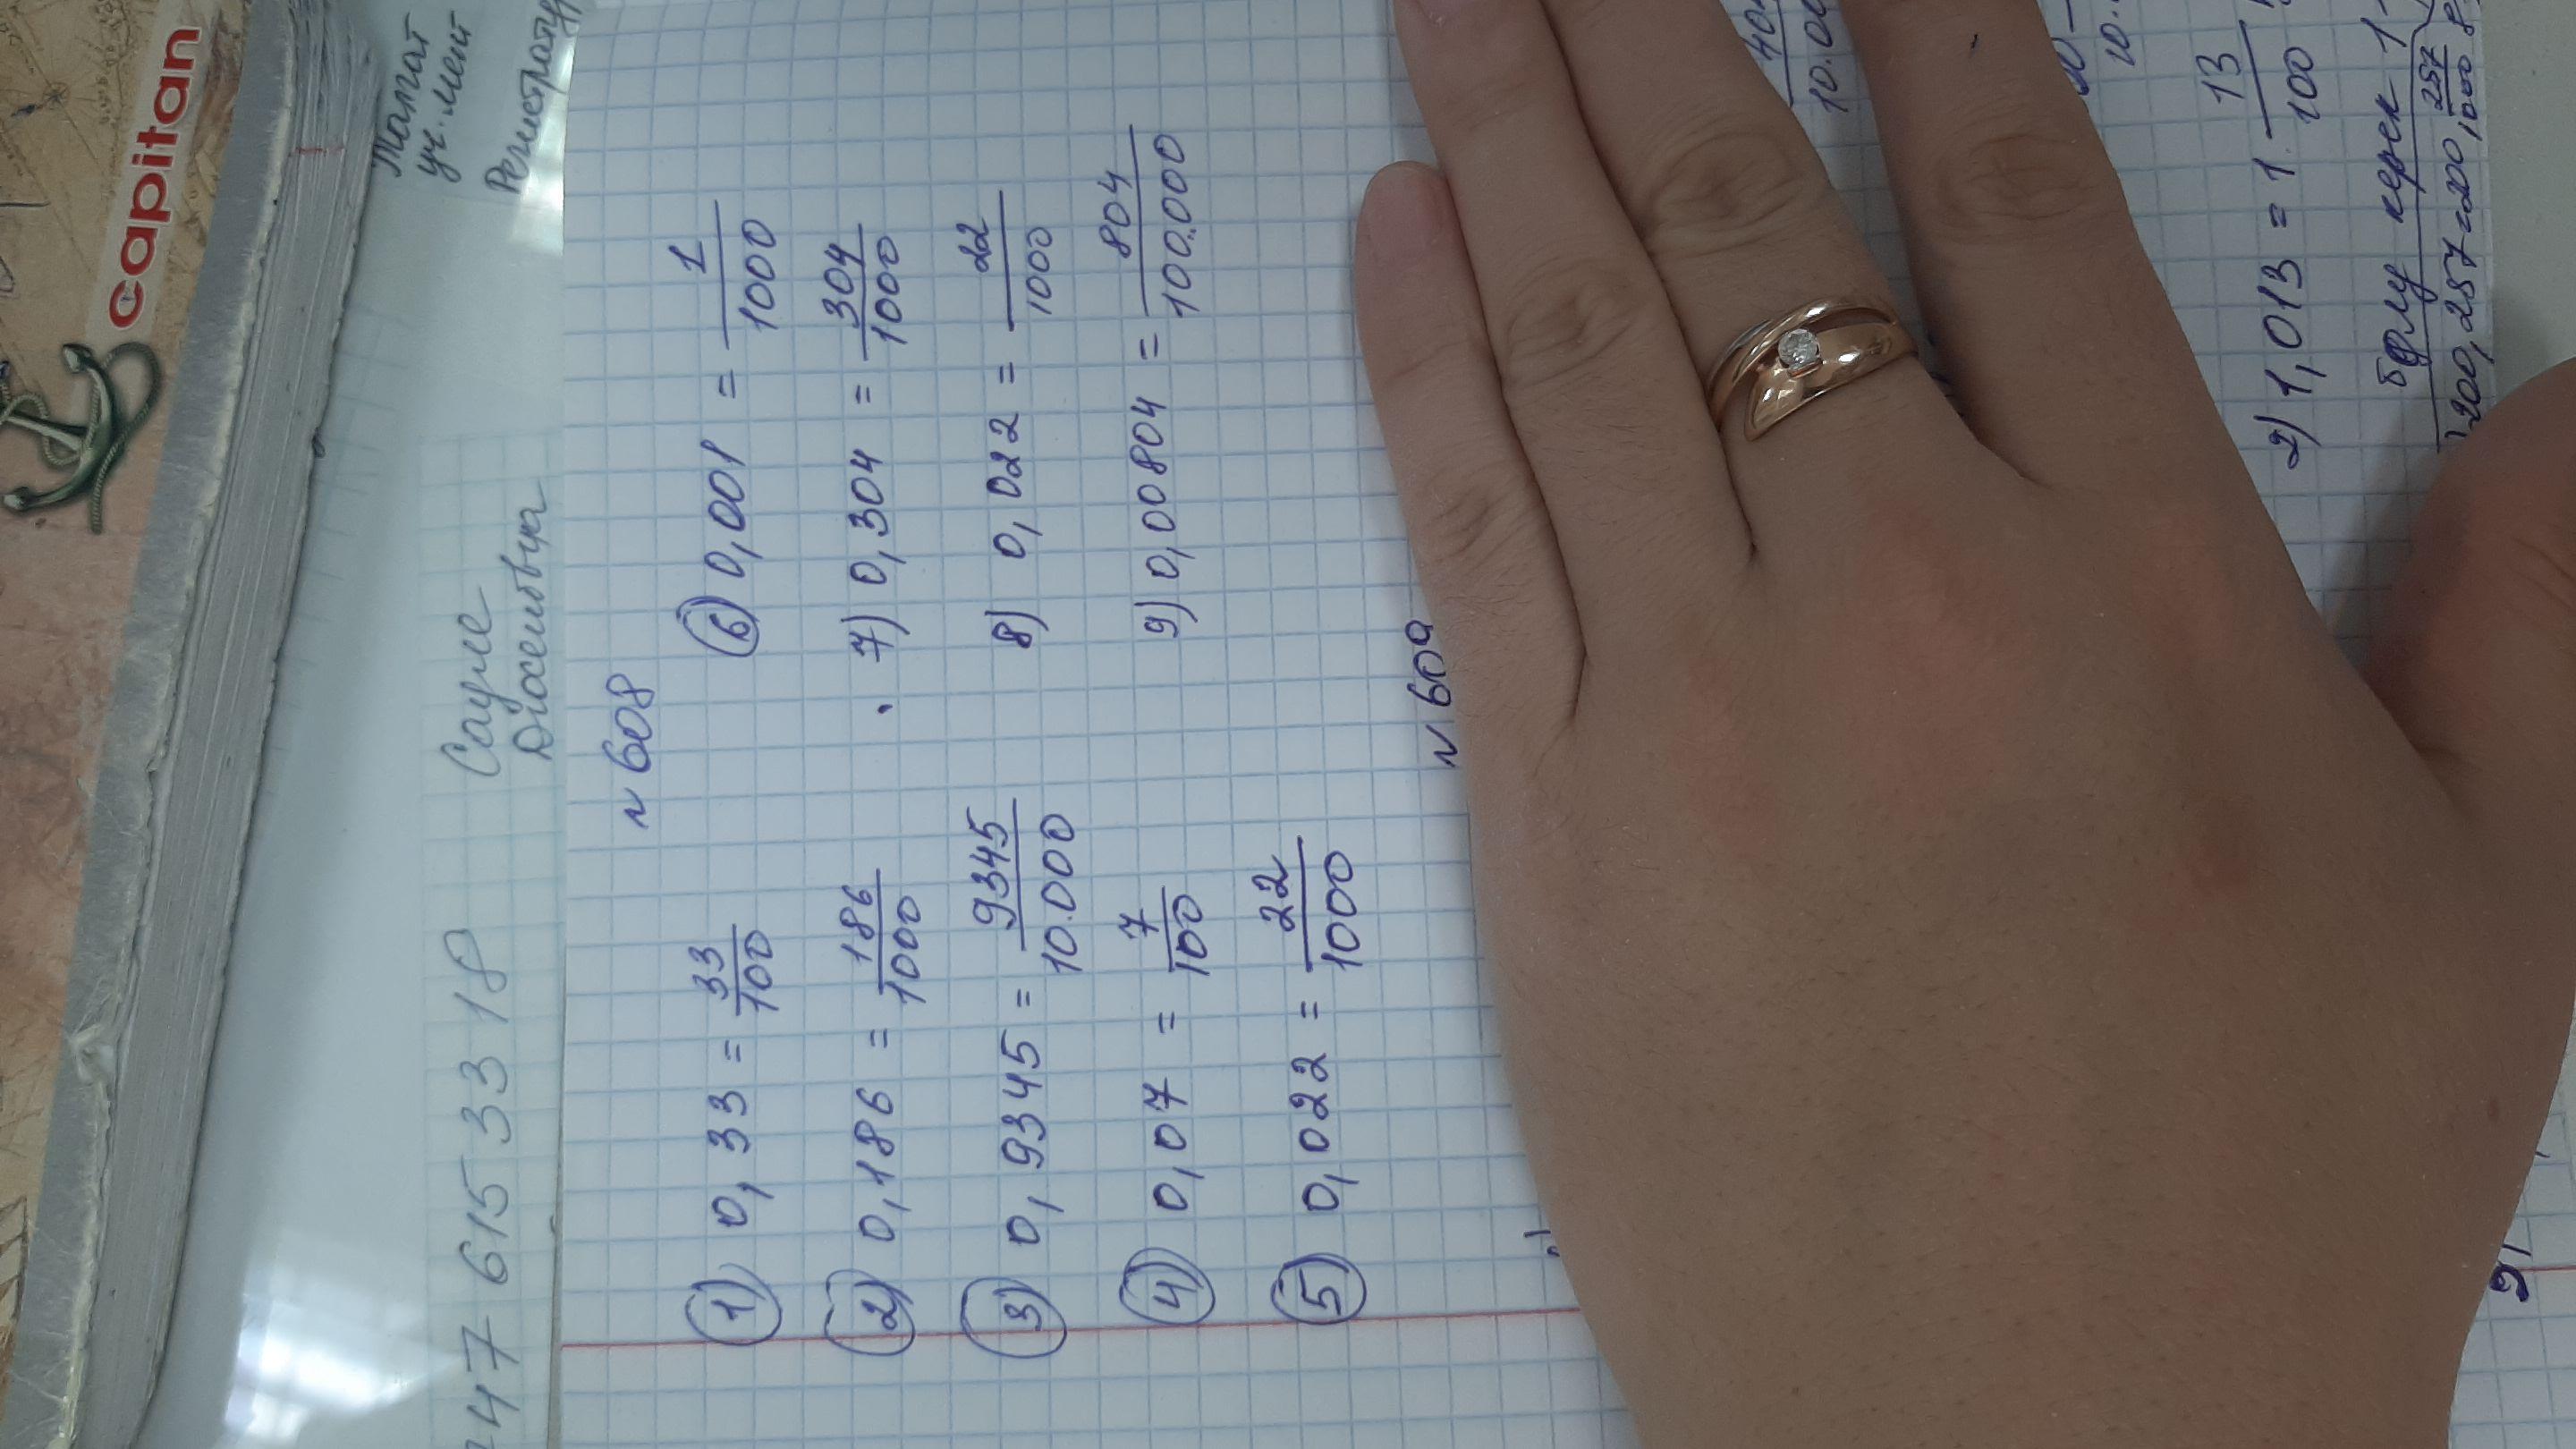 capitan
Талгат
уч. мент
Регистратур
747 615 33 18
Сауле
Дюсеновна
N 608
1) 0,33 = 33/100
2) 0,186 = 186/1000
3) 0,9345 = 9345/10.000
4) 0,07 = 7/100
5) 0,022 = 22/1000
6) 0,001 = 1/1000
7) 0,304 = 304/1000
8) 0,022 = 22/1000
9) 0,00804 = 804/100.000
N 609
2) 1,013 = 1 13/100
бөлу керек 1
200,257=200,257/1000